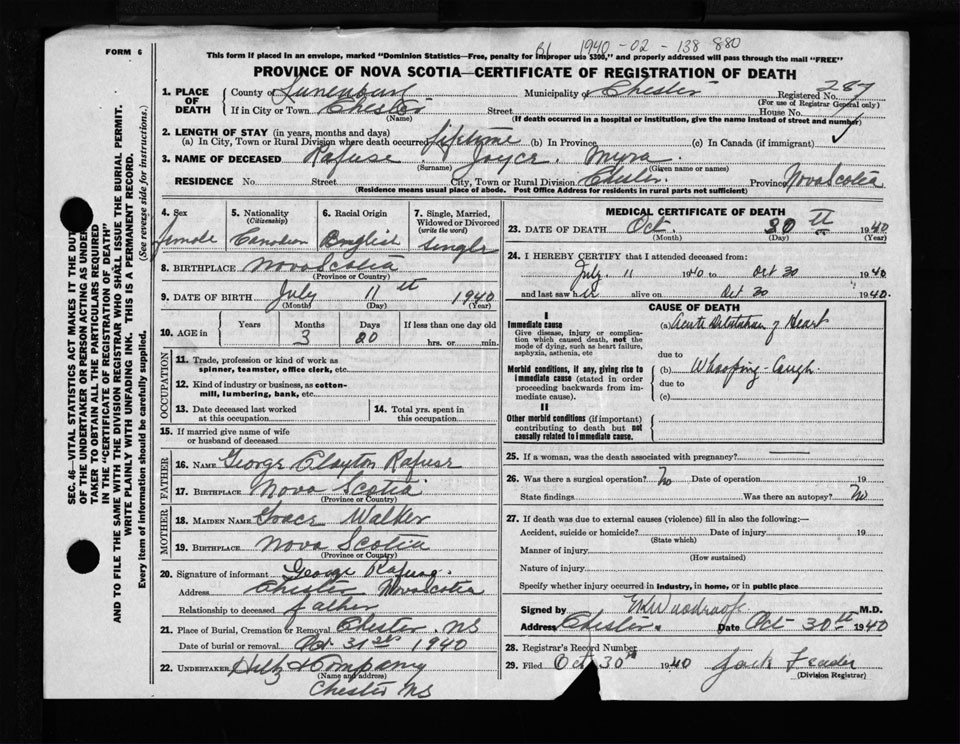 FORM 6
61 1940-02-138 880
This form if placed in an envelope, marked "Dominion Statistics—Free, penalty for improper use $300," and properly addressed will pass through the mail "FREE"
PROVINCE OF NOVA SCOTIA—CERTIFICATE OF REGISTRATION OF DEATH
1. PLACE OF DEATH County of Lunenburg Municipality of Chester Registered No. 287
(For use of Registrar General only)
If in City or Town Chester Street House No.
(Name) (If death occurred in a hospital or institution, give the name instead of street and number)
2. LENGTH OF STAY (in years, months and days)
(a) In City, Town or Rural Division where death occurred lifetime (b) In Province (c) In Canada (if immigrant)
3. NAME OF DECEASED Rafuse Joyce Myra
(Surname) (Given name or names)
RESIDENCE No. Street City, Town or Rural Division Chester Province Nova Scotia
(Residence means usual place of abode. Post Office Address for residents in rural parts not sufficient)
SEC. 46—VITAL STATISTICS ACT MAKES IT THE DUTY
OF THE UNDERTAKER OR PERSON ACTING AS UNDER-
TAKER TO OBTAIN ALL THE PARTICULARS REQUIRED
IN THE "CERTIFICATE OF REGISTRATION OF DEATH"
AND TO FILE THE SAME WITH THE DIVISION REGISTRAR WHO SHALL ISSUE THE BURIAL PERMIT.
WRITE PLAINLY WITH UNFADING INK. THIS IS A PERMANENT RECORD.
Every item of information should be carefully supplied. (See reverse side for instructions.)
4. Sex
female
5. Nationality
(Citizenship)
Canadian
6. Racial Origin
English
7. Single, Married,
Widowed or Divorced
(write the word)
single
8. BIRTHPLACE Nova Scotia
(Province or Country)
9. DATE OF BIRTH July 11th 1940
(Month) (Day) (Year)
10. AGE in Years Months Days If less than one day old
3 20 hrs. or min.
OCCUPATION
11. Trade, profession or kind of work as
spinner, teamster, office clerk, etc.
12. Kind of industry or business, as cotton-
mill, lumbering, bank, etc.
13. Date deceased last worked
at this occupation
14. Total yrs. spent in
this occupation
15. If married give name of wife
or husband of deceased
FATHER
16. NAME George Clayton Rafuse
17. BIRTHPLACE Nova Scotia
(Province or Country)
MOTHER
18. MAIDEN NAME Grace Walker
19. BIRTHPLACE Nova Scotia
(Province or Country)
20. Signature of informant George Rafuse.
Address Chester Nova Scotia
Relationship to deceased father
21. Place of Burial, Cremation or Removal Chester NS
Date of burial or removal Oct 31st 1940
22. UNDERTAKER Hiltz & Company
(Name and address)
Chester NS
MEDICAL CERTIFICATE OF DEATH
23. DATE OF DEATH Oct. 30th 1940
(Month) (Day) (Year)
24. I HEREBY CERTIFY that I attended deceased from:
July. 11 1940 to Oct 30 1940
and last saw her alive on Oct 30 1940.
CAUSE OF DEATH
I
Immediate cause
Give disease, injury or complica-
tion which caused death, not the
mode of dying, such as heart failure,
asphyxia, asthenia, etc
(a) Acute Dilatation of Heart
due to
Morbid conditions, if any, giving rise to
immediate cause (stated in order
proceeding backwards from im-
mediate cause).
(b) Whooping-Cough.
due to
(c)
II
Other morbid conditions (if important)
contributing to death but not
causally related to immediate cause.
25. If a woman, was the death associated with pregnancy?
26. Was there a surgical operation? No Date of operation 19
State findings Was there an autopsy? No
27. If death was due to external causes (violence) fill in also the following:—
Accident, suicide or homicide? Date of injury 19
(State which)
Manner of injury
(How sustained)
Nature of injury
Specify whether injury occurred in industry, in home, or in public place
Signed by Woodroofe M.D.
Address Chester. Date Oct 30th 1940
28. Registrar's Record Number
29. Filed Oct 30th 1940 Jack
(Division Registrar)